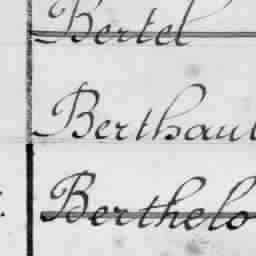 Bertel
Berthaul
Berthelo